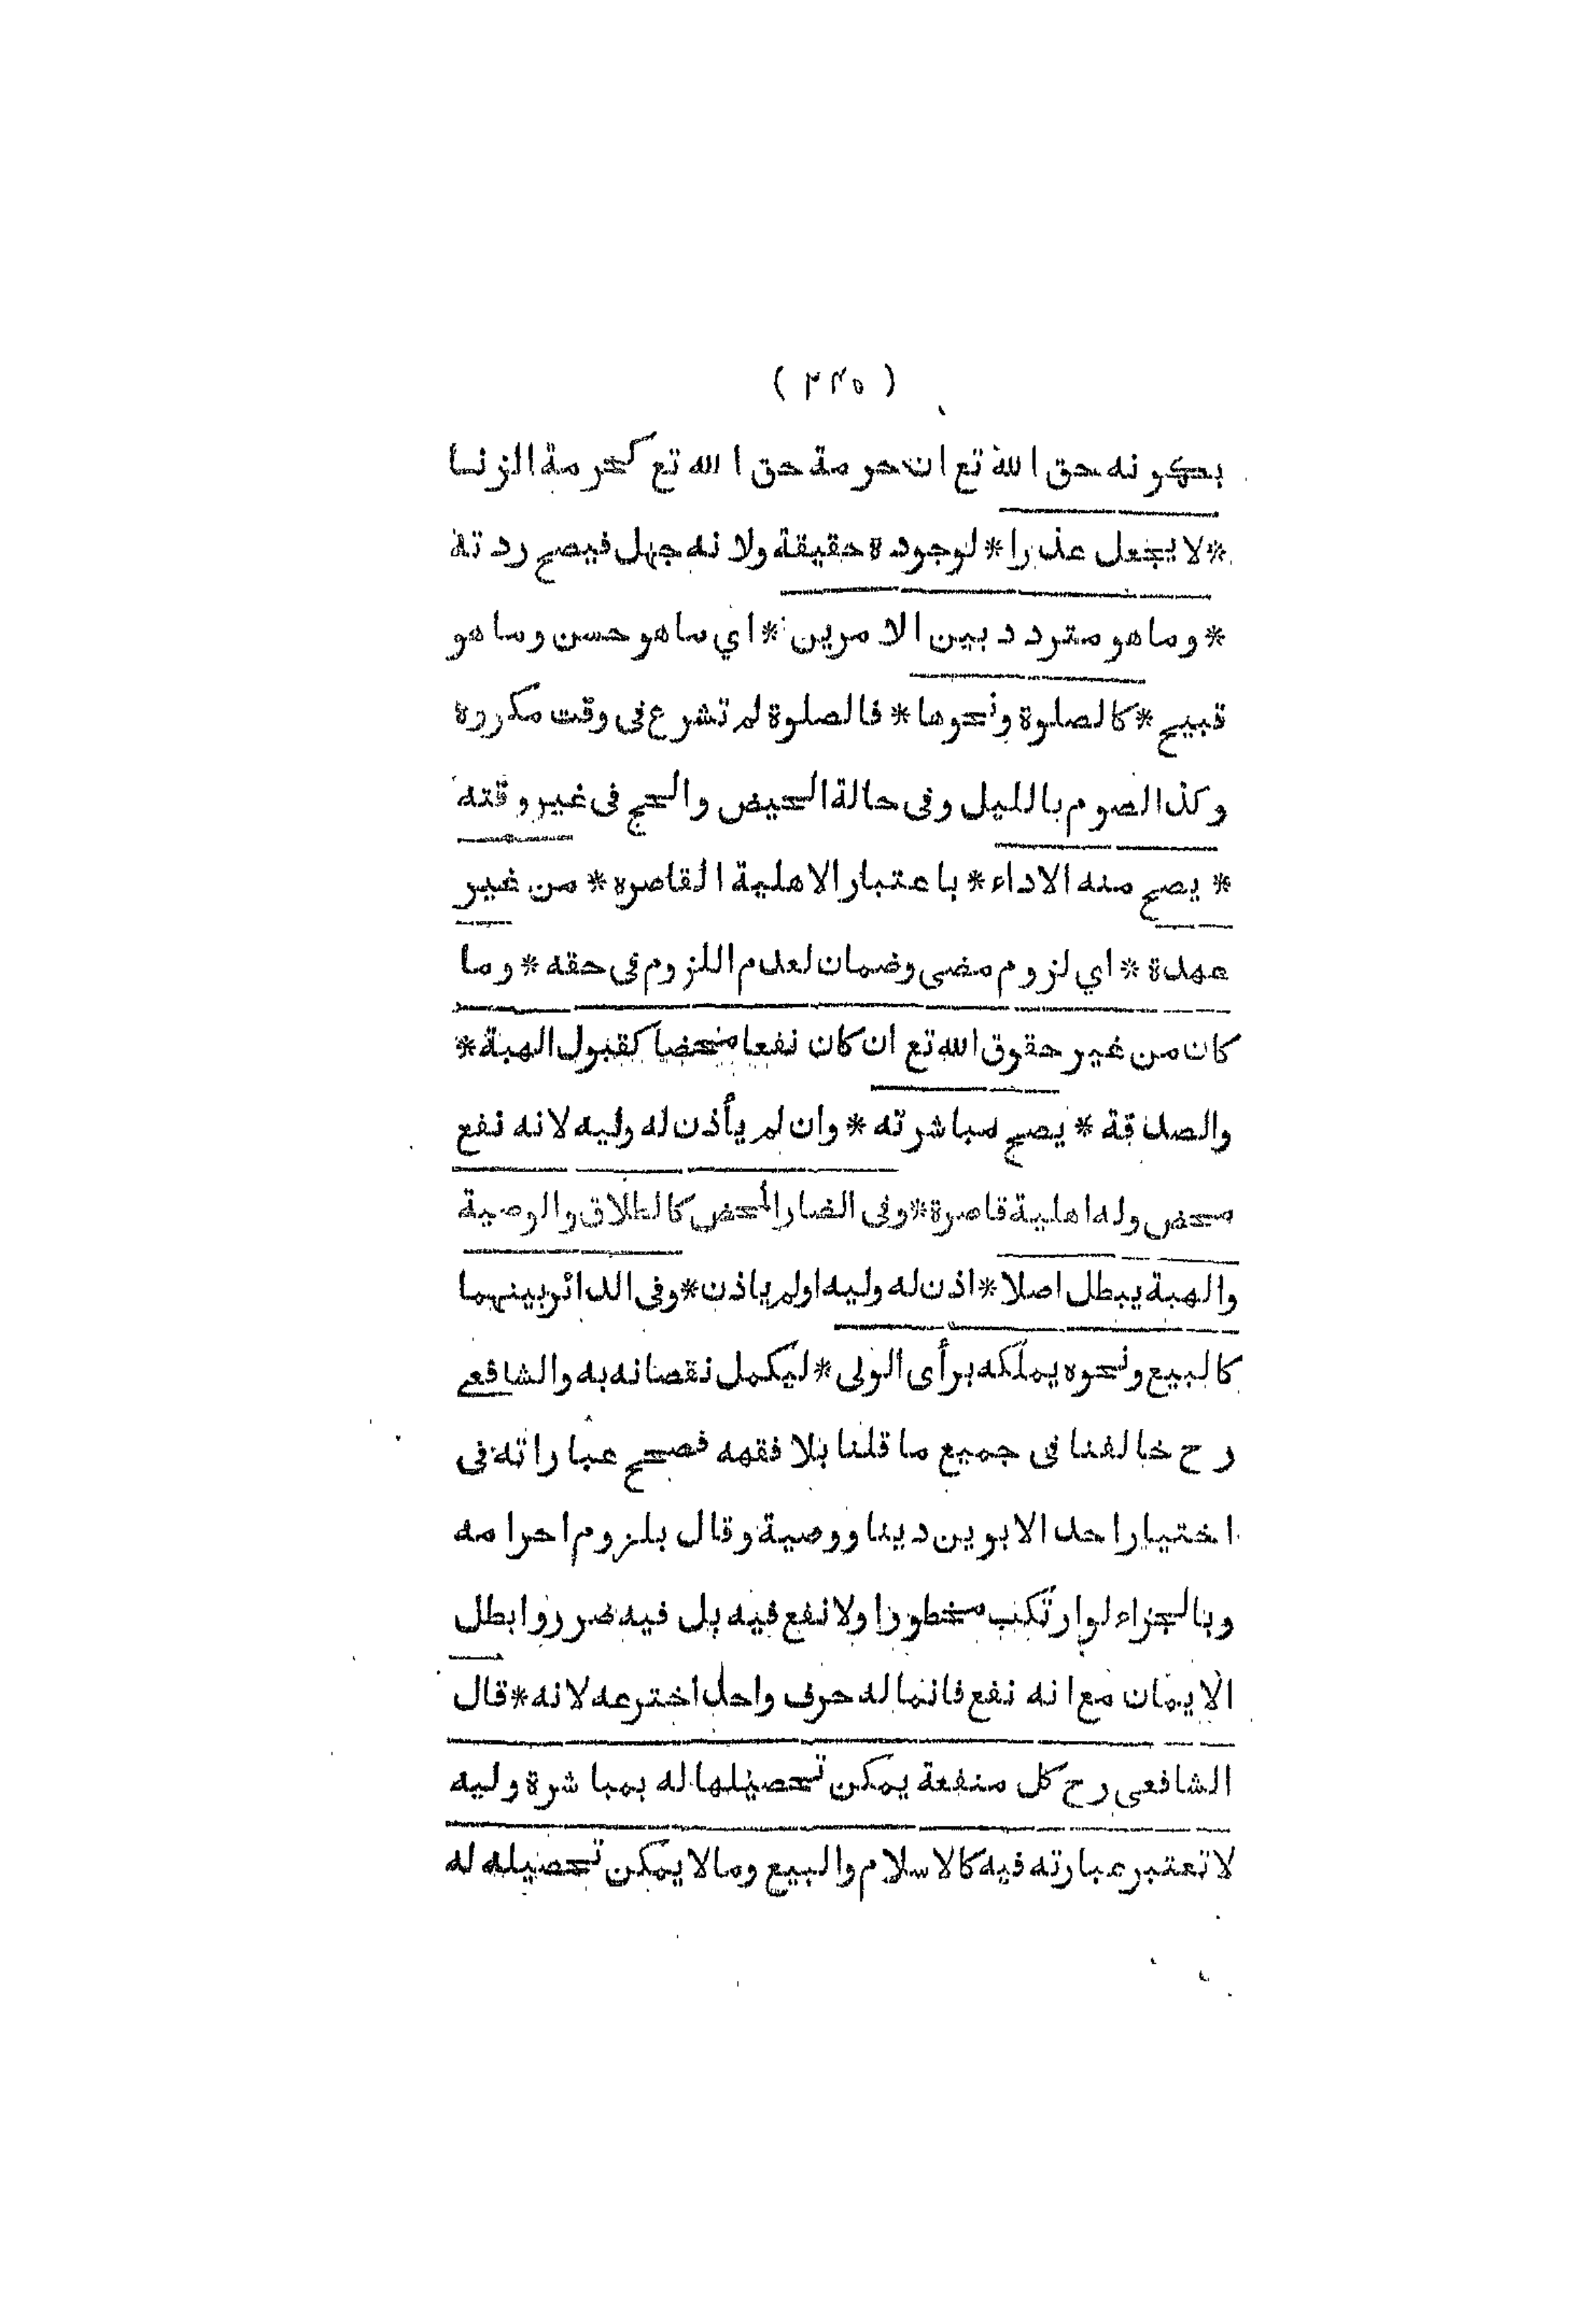 ( ٣٢٥ )
بكونه حق الله تع ان حرمة حق الله تع كحرمة الزنا
*لا يجعل عذرا* لوجوده حقيقة ولانه جهل فيصح ردته
* وما هو متردد بين الامرين *اي ما هو حسن وما هو
قبيح * كالصلوة ونحوها * فالصلوة لم تشرع في وقت مكروه
وكذا الصوم بالليل وفى حالة الحيض والحج فى غير وقته
* يصح منه الاداء * باعتبار الاهلية القاصره * من غير
عهدة * اي لزوم مضى وضمان لعدم اللزوم فى حقه * وما
كان من غير حقوق الله تع ان كان نفعا محضا كقبول الهبة *
والصدقة * يصح مباشرته * وان لم يأذن له وليه لانه نفع
محض وله اهلية قاصرة * وفى الضار المحض كالطلاق والوصية
والهبة يبطل اصلا * اذن له وليه اولم ياذن * وفى الدائر بينهما
كالبيع ونحوه يملكه برأى الولى * ليكمل نقصانه به والشافعى
رح خالفنا فى جميع ما قلنا بلا فقهه فصحح عباراته فى
اختيار احد الابوين دينا ووصية وقال بلزوم احرامه
وبالجزاء لو ارتكب محظورا ولا نفع فيه بل فيه ضرر وابطل
الايمان مع انه نفع فانما له حرف واحد اخترعه لانه * قال
الشافعى رح كل منفعة يمكن تحصيلها له بمباشرة وليه
لا تعتبر عبارته فيه كالاسلام والبيع وما لا يمكن تحصيله له